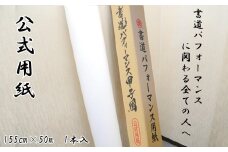 公式用紙
155cm×50m 1本入
書道パフォーマンス甲子園
書道パフォーマンス用紙
書道パフォーマンス
に関わる全ての人へ